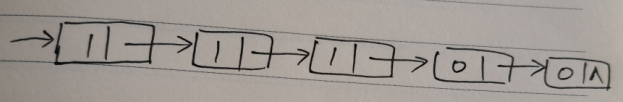 → 1 | → 1 | → 1 | → 0 | → 0 | ∧